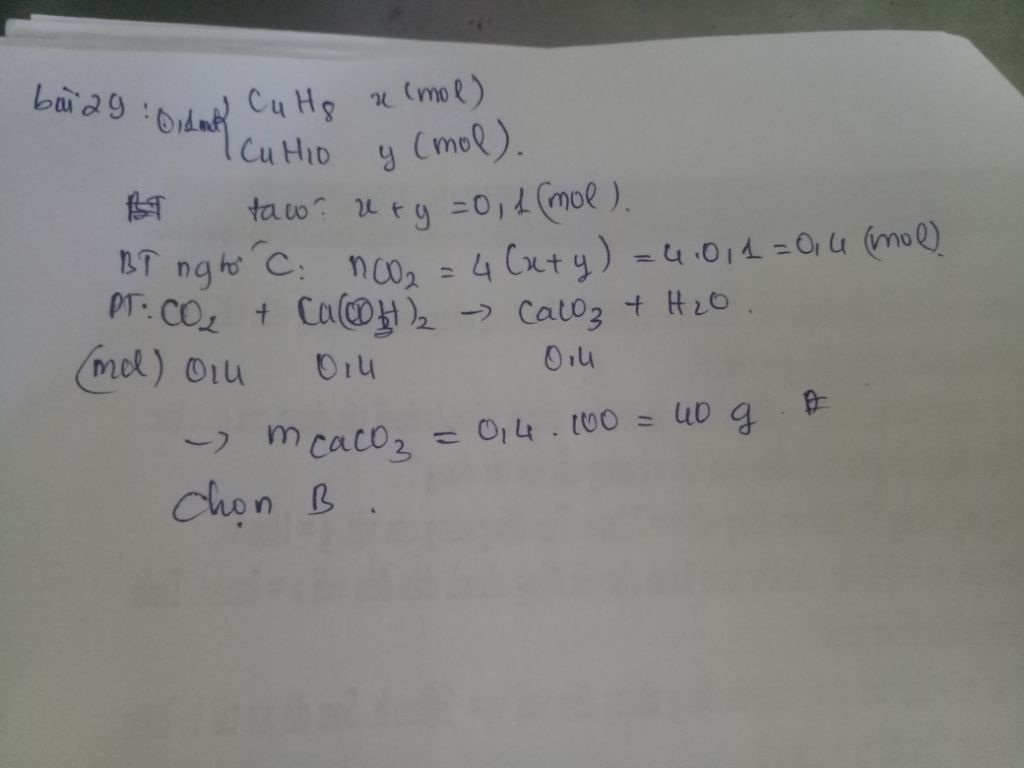 bài 29: 0,1mol { C4H8 x (mol)
C4H10 y (mol).
ta có: x + y = 0,1 (mol).
BT ngtố C: nCO2 = 4 (x+y) = 4.0,1 = 0,4 (mol)
PT: CO2 + Ca(OH)2 → CaCO3 + H2O.
(mol) 0,4 0,4 0,4
→ mCaCO3 = 0,4.100 = 40 g.
Chọn B.